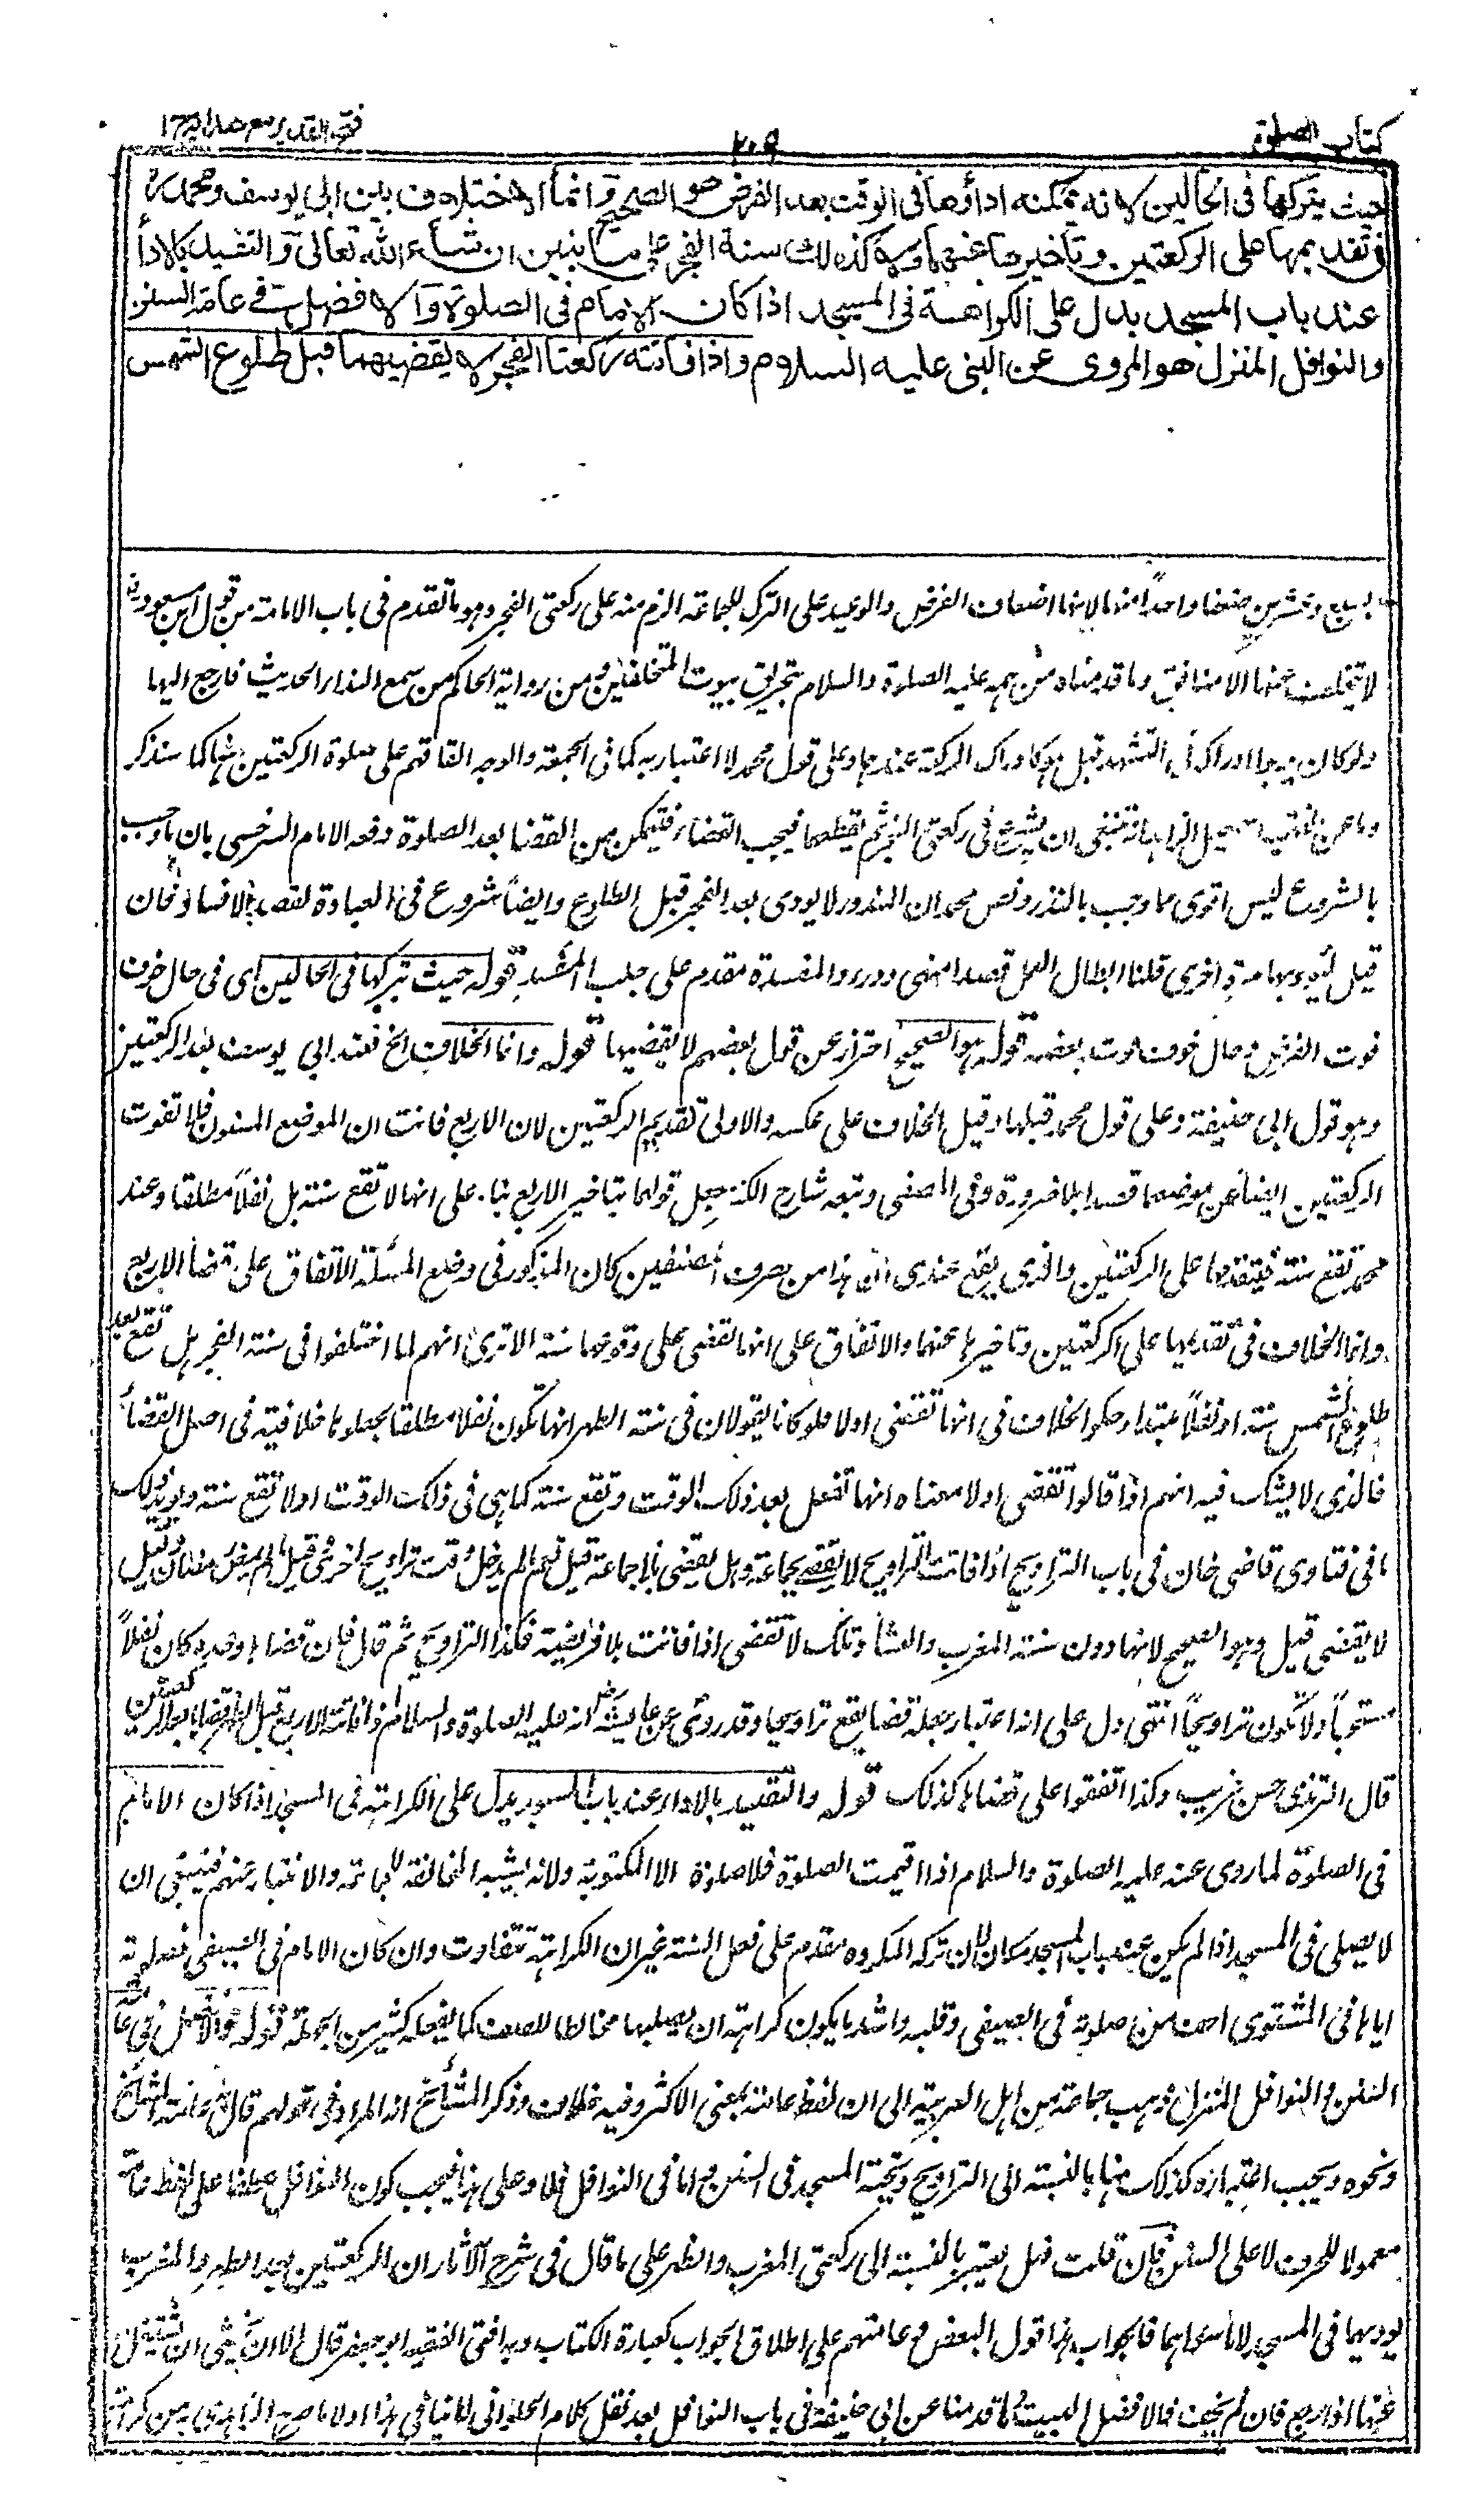 كتاب الصلوة
٢٠٩
فتح القدير مع هداية ج١
حيث يتركها فى الحالين لانه يمكنه اداؤها فى الوقت بعد الفرض هو الصحيح وانما الاختلاف بين ابى يوسف ومحمد رح
فى تقديمها على الركعتين وتأخيرها عنهما ولا كذلك سنة الفجر على ما نبين ان شاء الله تعالى والتقييد بالاداء
عند باب المسجد يدل على الكراهة فى المسجد اذا كان الامام فى الصلوة والافضل فى عامة السنن
والنوافل المنزل هو المروى عن النبى عليه السلام واذا فاتته ركعتا الفجر لا يقضيهما قبل طلوع الشمس
بسبع وعشرين ضعفا واحدا منها لانها اضعاف الفرض والوعيد على الترك للجماعة الزم منه على ركعتى الفجر وهو ما تقدم فى باب الامامة من قول ابن مسعود رض
لا يتخلف عنها الا منافق وما قدمناه من همه عليه الصلوة والسلام بتحريق بيوت المتخلفين ومن رواية الحاكم من سمع النداء الحديث فارجع اليها
ولو كان يرجو ادراكه فى التشهد قيل هو كادراك الركعة عندهما وعلى قول محمد لا اعتبار به كما فى الجمعة والوجه اتفاقهم على صلوة الركعتين هنا كما سنذكر
وما عن الفقيه اسمعيل الزاهد انه ينبغى ان يشرع فى ركعتى الفجر ثم يقطعهما فيجب القضاء فيتمكن من القضا بعد الصلوة دفعه الامام السرخسى بان ما وجب
بالشروع ليس اقوى مما وجب بالنذر ونص محمد ان المنذور لا يودى بعد الفجر قبل الطلوع وايضا شروع فى العبادة لقصد الافساد فان
قيل ليؤديها مرة اخرى قلنا ابطال العمل قصدا منهى ودرء المفسدة مقدم على جلب المصلحة قوله حيث يتركها فى الحالين اى فى حال خوف
فوت الفرض وحال خوف فوت بعضه قوله هو الصحيح احتراز عن قول بعضهم لا يقضيها قوله وانما الخلاف الخ فعند ابى يوسف بعد الركعتين
وهو قول ابى حنيفة وعلى قول محمد قبلهما وقيل الخلاف على عكسه والاولى تقديم الركعتين لان الاربع فاتت عن الموضع المسنون فلا تفوت
الركعتين ايضا عن موضعهما قصدا بلا ضرورة وفى المصفى وتبعه شارح الكنز جعل قولهما بتاخير الاربع بناء على انها لا تقع سنة بل نفلا مطلقا وعند
محمد تقع سنة فيقدمها على الركعتين والذى يقع عندى ان هذا من تصرف المصنفين كان المذكور فى وضع المسئلة الاتفاق على قضاء الاربع
وانما الخلاف فى تقديمها على الركعتين وتاخيرها عنهما والاتفاق على انها تقضى على وقوعها سنة الا ترى انهم لما اختلفوا فى سنة الفجر هل تقع بعد
طلوع الشمس سنة او نفلا مبتدا حكوا الخلاف فى انها تقضى اولا فلو كانا يقولان فى سنة الظهر انها تكون نفلا مطلقا لجعلوها خلافية فى اصل القضاء
فالذى لا يشك فيه انهم اذا قالوا تقضى اولا معناه انها تفعل بعد ذلك الوقت وتقع سنة كما هى فى ذلك الوقت اولا تقع سنة ويؤيد ذلك
ما فى فتاوى قاضى خان فى باب التراويح اذا فاتت التراويح لا تقضى بجماعة وهل يقضى بلا جماعة قيل نعم ما لم يدخل وقت تراويح اخرى وقيل ما لم يمض رمضان وقيل
لا يقضى قيل وهو الصحيح لانها دون سنة المغرب والعشاء وتلك لا تقضى اذا فاتت بلا فريضة فكذا التراويح ثم قال فان قضاها وحده كان نفلا
مستحبا ولا يكون تراويحا انتهى دل على ان اعتبار جعله قضا يقع تراويحا وقد روى عن عايشة انه عليه الصلوة والسلام اذا فاتته الاربع قبل الظهر قضاها بعد الركعتين
قال الترمذى حسن غريب وكذا اتفقوا على قضائها كذلك قوله والتقييد بالاداء عند باب المسجد يدل على الكراهة فى المسجد اذا كان الامام
فى الصلوة لما روى عنه عليه الصلوة والسلام اذا اقيمت الصلوة فلا صلوة الا المكتوبة ولانه يشبه المخالفة للجماعة والانتباذ عنهم فينبغى ان
لا يصلى فى المسجد اذا لم يكن عند باب المسجد مكان لان ترك المكروه مقدم على فعل السنة غير ان الكراهة تتفاوت وان كان الامام فى الصيفى فصلوته
اياها فى الشتوى اخف من صلوته فى الصيفى وقلبه واشد ما يكون كراهة ان يصليها مخالطا للصف كما يفعله كثير من الجهلة قوله والافضل فى عامة
السنن والنوافل المنزل ذهب جماعة من اهل العربية الى ان لفظ عامة بمعنى الاكثر وفيه خلاف وذكر المشائخ انه المراد فى قولهم قال به عامة المشائخ
ونحوه ويجب اعتباره كذلك هنا بالنسبة الى التراويح وتحية المسجد فى السنن واما فى النوافل فلا وعلى هذا فيجب كون النوافل عطفا على لفظ عامة
معمولا للحرف لا على السنن فان قلت فهل يعتبر بالنسبة الى ركعتى المغرب والظهر على ما قال فى شرح الآثار ان الركعتين بعد الظهر والمغرب
يوديهما فى المسجد لا ما سواهما فالجواب هذا قول البعض وعامتهم على اطلاق الجواب كعبارة الكتاب وبه افتى الفقيه ابو جعفر قال الا ان يخشى ان يشتغل
عنها اذا رجع فان لم يخف فالافضل البيت وما قدمنا عن ابى حنيفة فى باب النوافل بعد نقل كلام الحلوانى